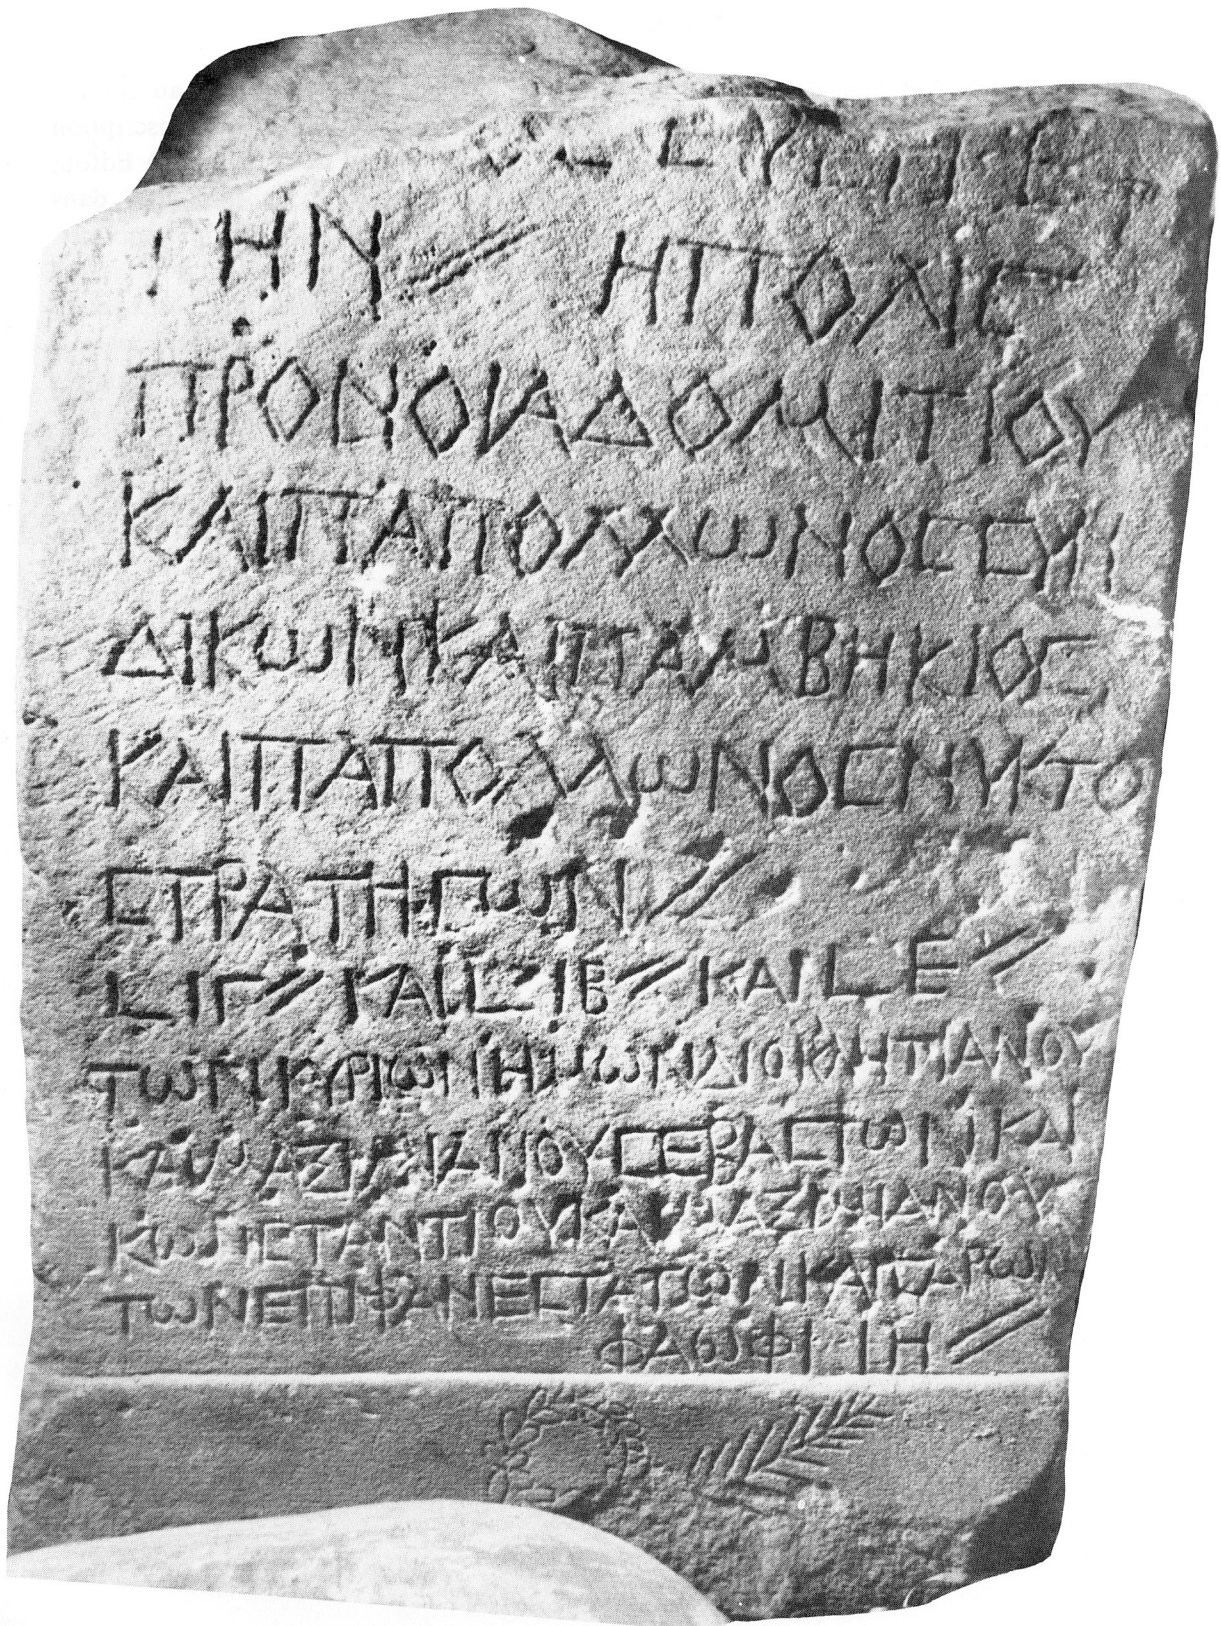 ΕΥΕΡΓΕ
ΤΗΝ // Η ΠΟΛΙϹ
ΠΡΟΝΟΙΑ ΔΟΜΙΤΙΟΥ
ΚΑΙ ΠΑΠΟΛΛΩΝΟϹ ϹΥΝ
ΔΙΚΩΝ ΚΑΙ ΠΑΜΒΗΚΙΟϹ
ΚΑΙ ΠΑΠΟΛΛΩΝΟϹ ΝΥΚΤΟ
ϹΤΡΑΤΗΓΩΝ //
L ΙΓ // ΚΑΙ L ΙΒ // ΚΑΙ L Ε //
ΤΩΝ ΚΥΡΙΩΝ ΗΜΩΝ ΔΙΟΚΛΗΤΙΑΝΟΥ
ΚΑΙ ΜΑΞΙΜΙΑΝΟΥ ϹΕΒΑϹΤΩΝ ΚΑΙ
ΚΩΝϹΤΑΝΤΙΟΥ ΚΑΙ ΜΑΞΙΜΙΑΝΟΥ
ΤΩΝ ΕΠΙΦΑΝΕϹΤΑΤΩΝ ΚΑΙϹΑΡΩΝ
ΦΑΩΦΙ ΙΗ //